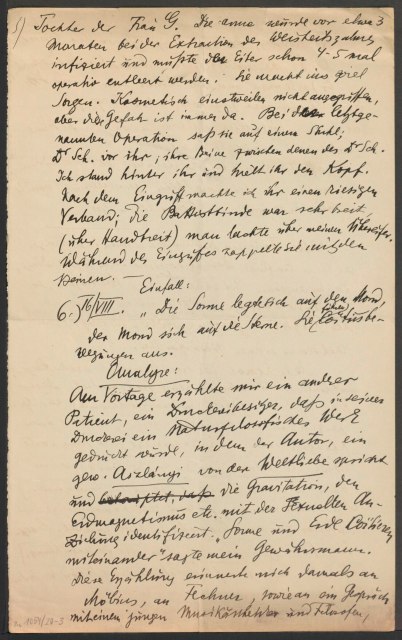 5) Tochter der Frau G. Die arme wurde vor etwa 3
Monaten bei der Extraction des Weisheitszahnes
infiziert und mußte der Eiter schon 4-5 mal
operativ entleert werden. Sie macht uns viel
Sorgen. Kosmetisch einstweilen nicht angegriffen,
aber die Gefahr ist immer da. Bei der letztge-
nannten Operation saß sie auf einem Stuhl;
Dr Sch. vor ihr, ihre Beine zwischen denen des Dr Sch.
Ich stand hinter ihr und hielt ihr den Kopf.
Nach dem Eingriff machte ich ihr einen riesigen
Verband; die Battistbinde war sehr breit
(über Handbreit) man lachte über meinen Übereifer.
Während des Eingriffes zappelte sie mit den
Beinen. —
Einfall:
6.) 16/VIII. "Die Sonne legte sich auf den Mond,
der Mond sich auf die Sterne. Sie führten Coitusbe-
wegungen aus.
Analyse:
Am Vortage erzählte mir ein anderer
Patient, ein Druckereibesitzer, daß in seiner
Druckerei ein Naturfilosofisches Werk
gedruckt würde, in dem der Autor, ein
gew. Aizlányi von der Weltliebe spricht
und behauptet, daß die Gravitation, den
Erdmagnetismus etc. mit der Sexuellen An-
ziehung identifiziert. „Sonne und Erde coitieren
miteinander" sagte mein Gewährsmann.
Diese Erzählung erinnerte mich damals an
Möbius, an Fechner, sowie an ein Gespräch
mit einem jungen Musikästheten und Filosofen,